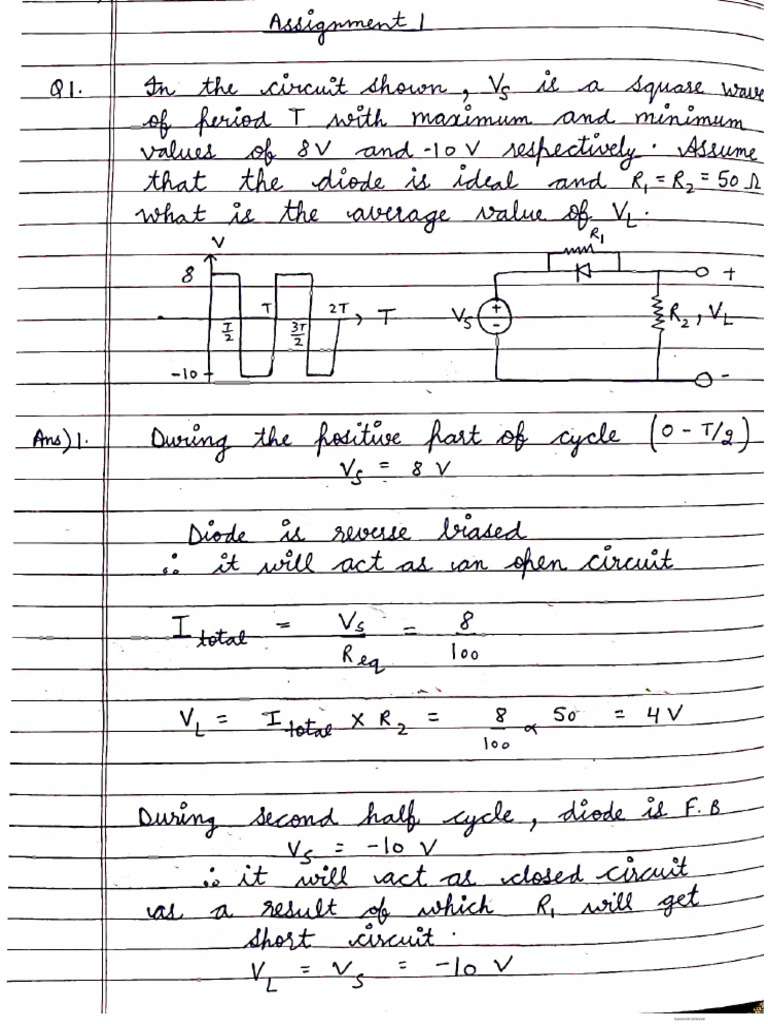 Assignment 1
Q1. In the circuit shown, Vs is a square wave
of period T with maximum and minimum
values of 8V and -10 V respectively. Assume
that the diode is ideal and R1 = R2 = 50 Ω
what is the average value of VL.
V
R1
8
T
2T, T
Vs
+
-
+
R2, VL
T/2
3T/2
-10
-
Ans) 1. During the positive part of cycle (0 - T/2)
Vs = 8 V
Diode is reverse biased
∴ it will act as an open circuit
I total = Vs/Req = 8/100
VL = I total × R2 = 8/100 × 50 = 4 V
During second half cycle, diode is F.B
Vs = -10 V
∴ it will act as closed circuit
as a result of which R1 will get
short circuit.
VL = Vs = -10 V